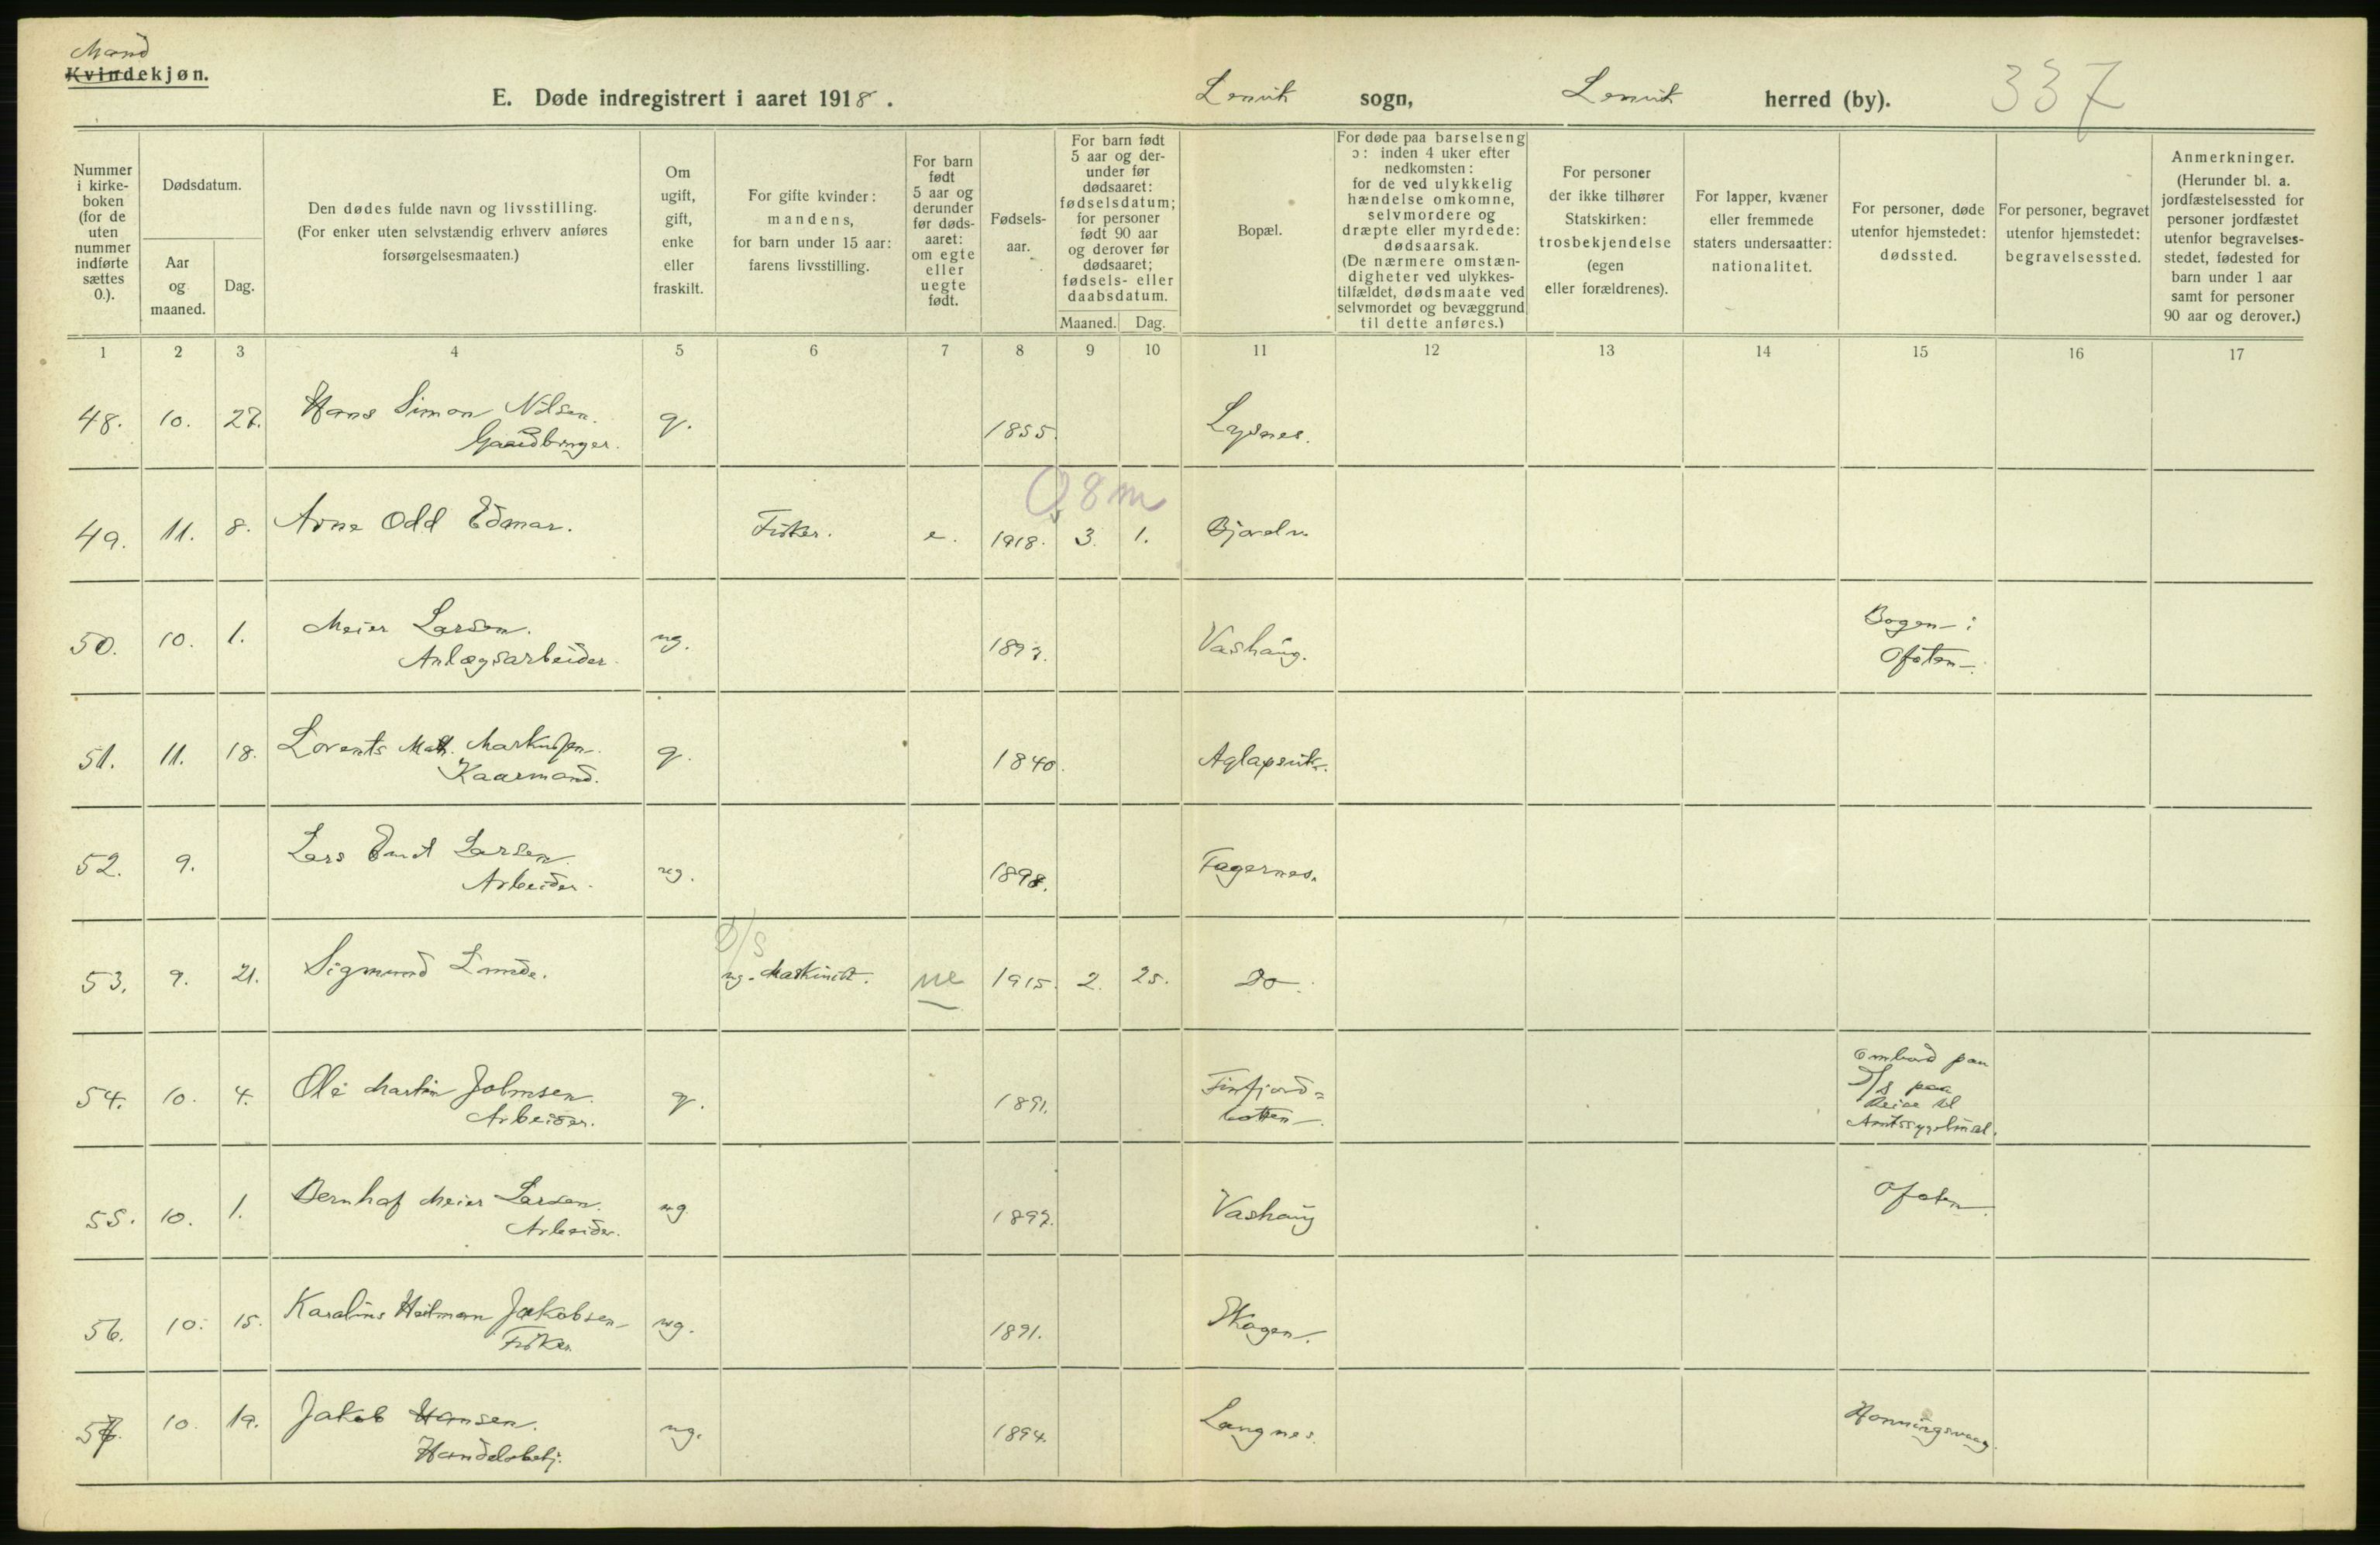 Mand
Kvindekjøn.
E. Døde indregistrert i aaret 1918.
Lenvik sogn, Lenvik herred (by). 337
Nummer i kirkeboken (for de uten nummer indførte sættes 0.).
Dødsdatum.
Aar og maaned.
Dag.
Den dødes fulde navn og livsstilling. (For enker uten selvstændig erhverv anføres forsørgelsesmaaten.)
Om ugift, gift, enke eller fraskilt.
For gifte kvinder: mandens, for barn under 15 aar: farens livsstilling.
For barn født 5 aar og derunder før dødsaaret: om egte eller uegte født.
Fødselsaar.
For barn født 5 aar og derunder før dødsaaret: fødselsdatum; for personer født 90 aar og derover før dødsaaret; fødsels- eller daabsdatum.
Maaned. Dag.
Bopæl.
For døde paa barselseng ɔ: inden 4 uker efter nedkomsten: for de ved ulykkelig hændelse omkomne, selvmordere og dræpte eller myrdede: dødsaarsak. (De nærmere omstændigheter ved ulykkestilfældet, dødsmaate ved selvmordet og bevæggrund til dette anføres.)
For personer der ikke tilhører Statskirken: trosbekjendelse (egen eller forældrenes).
For lapper, kvæner eller fremmede staters undersaatter: nationalitet.
For personer, døde utenfor hjemstedet: dødssted.
For personer, begravet utenfor hjemstedet: begravelsessted.
Anmerkninger. (Herunder bl. a. jordfæstelsessted for personer jordfæstet utenfor begravelsesstedet, fødested for barn under 1 aar samt for personer 90 aar og derover.)
1 2 3 4 5 6 7 8 9 10 11 12 13 14 15 16 17
48. 10. 27. Hans Simon Nilsen. g. 1855. Lysnes.
Gaardbruger.
0,8 m
49. 11. 8. Arne Odd Edmar. Fisker. e. 1918. 3. 1. Bjorelv.
50. 10. 1. Meier Larsen. ug. 1897. Vashaug. Bogen i
Anlægsarbeider. Ofoten.
51. 11. 18. Lorents Math. Markussen. g. 1840. Aglapsvik.
Kaarmand.
52. 9. Lars Emil Larsen. ug. 1898. Fagernes.
Arbeider.
D/S
53. 9. 21. Sigmund Lunde. ug. Maskinist. ue 1915. 2. 25. Do.
54. 10. 4. Ole Martin Johnsen. g. 1891. Finfjord=
Arbeider. botten.
Ombord paa
D/S paa
Reise til
Amtssygehuset.
55. 10. 1. Bernhof Meier Larsen. ug. 1897. Vashaug Ofoten.
Arbeider.
56. 10. 15. Karolius Heitman Jakobsen ug. 1891. Skogen.
Fisker
57. 10. 19. Jakob Hansen. ug. 1894. Langnes. Honningsvaag.
Handelsbetj.